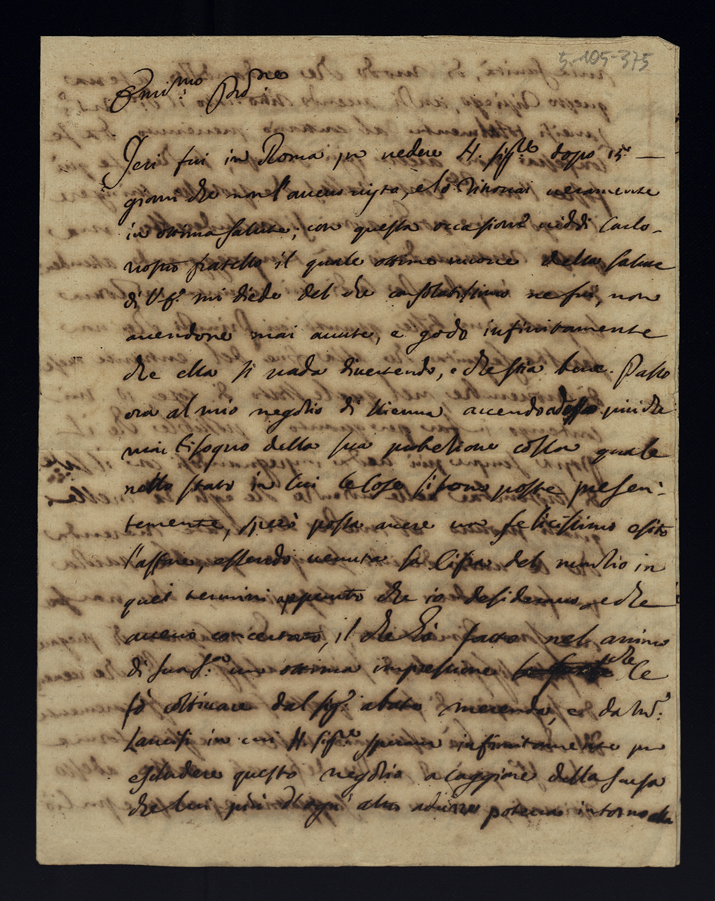 5-105-375
Em.mo Pad.ne
Jeri fui in Roma per vedere il sig.re dopo 15
giorni che non l'avevo visto, e lo ritrovai veramente
in ottima salute; con questa occasione viddi Carlo
nostro fratello il quale ottime nuove della salute
di V.E. mi diede del che consolatissimo ne fui, non
avendone mai avute, e godo infinitamente
che ella si vada divertendo, e che stia bene. Passo
ora al mio negotio di Vienna avendo adesso più che
mai bisogno della sua protezione colla quale
nello stato in cui le cose si sono poste presen:
temente, spero possa avere un felicissimo esito
l'affare, essendo venuta la cifra del nuntio in
quei termini appunto che io desideravo, e che
avevo concertato, il che hà fatto nel animo
di Sua S.tà una ottima impressione che le
fò coltivare dal sig.r abate Merenda, e da M.r
Lancisi in cui il sig.re sperava infinitamente per
escludere questo negotio a caggione della
che lui più d'ogni altro potevan intorno alla